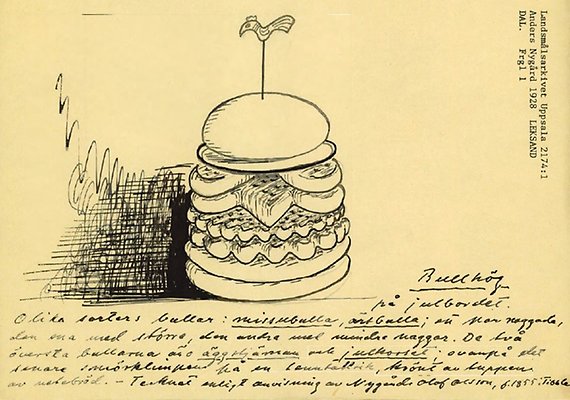 Landsmålsarkivet Uppsala 2174:1
Anders Nygård 1928 LEKSAND
DAL. Frgl 1
Bullhög
på julbordet.
Olika sorters bullar: missubulla, artbulla; ett par naggade,
den ena med större, den andra med mindre naggar. De två
översta bullarna äro äggstjärnan och julkorset; ovanpå det
senare smörklumpen på en tenntallrik, krönt av tuppen
av vetebröd. – Tecknat enligt anvisning av Nygårds Olof Olsson, f. 1855.